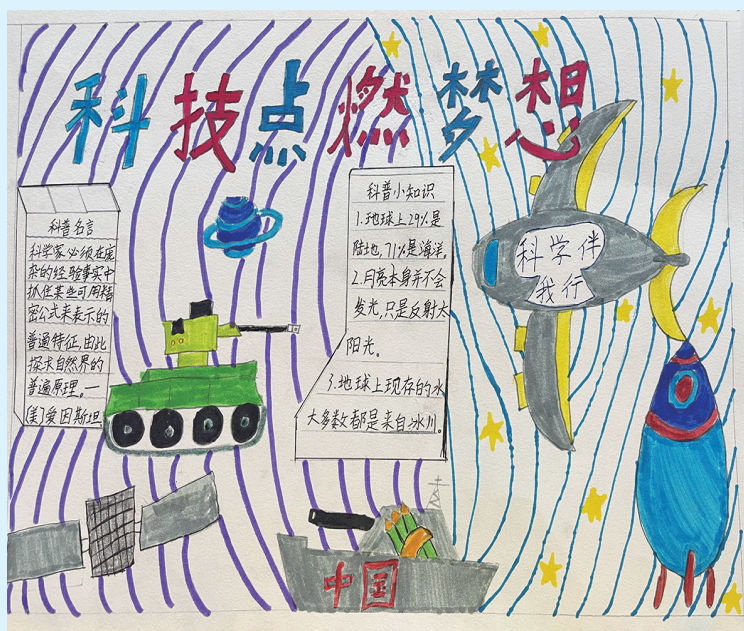 科技点燃梦想
科普名言
科学家必须在庞
杂的经验事实中
抓住某些可用精
密公式来表示的
普遍特征,由此
探求自然界的
普遍原理。一
[美]爱因斯坦
科普小知识
1.地球上29%是
陆地,71%是海洋。
2.月亮本身并不会
发光,只是反射太
阳光。
3.地球上现存的水
大多数都是来自冰川。
科学伴
我行
中国